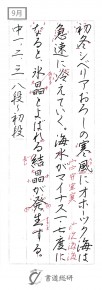 9月
初冬シベリアおろしの寒風でオホーツク海は
急速に冷えていく。海水がマイナス一・七度に
なると、氷晶とよばれる結晶が発生する。
中一・二・三 八段〜初段
書道総研